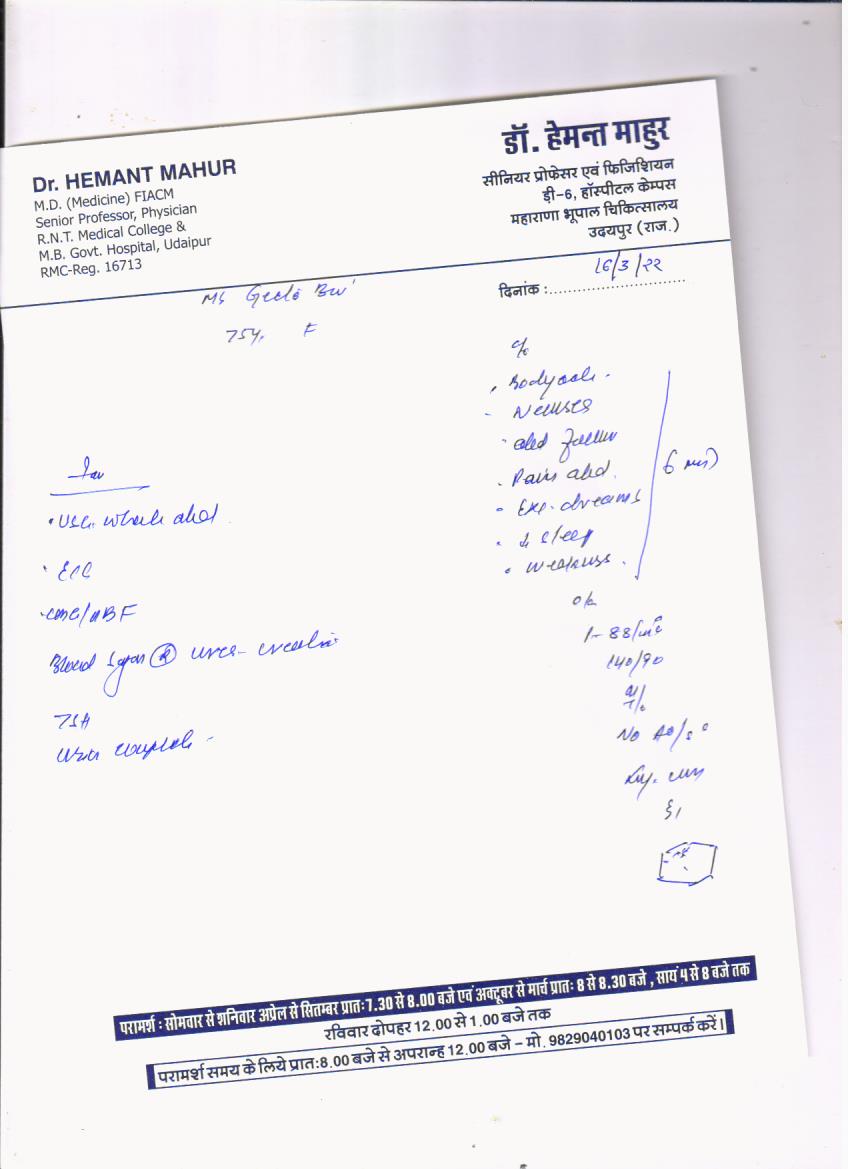 Dr. HEMANT MAHUR
M.D. (Medicine) FIACM
Senior Professor, Physician
R.N.T. Medical College &
M.B. Govt. Hospital, Udaipur
RMC-Reg. 16713
डॉ. हेमन्त माहुर
सीनियर प्रोफेसर एवं फिजिशियन
डी-6, हॉस्पीटल केम्पस
महाराणा भूपाल चिकित्सालय
उदयपुर (राज.)
दिनांक : 16/3/22
75y. F
c/o
Bodyache
Abd
Pain abd.
dreams
↓ sleep
Weakness
6
o/e
88/min
140/90
No
USG. whole abd
ECG
CBC/
Blood Sugar (R) urea - creatinine
TSH
Urine complete
परामर्श : सोमवार से शनिवार अप्रेल से सितम्बर प्रातः7.30 से 8.00 बजे एवं अक्टूबर से मार्च प्रातः 8 से 8.30 बजे , सायं 4 से 8 बजे तक
रविवार दोपहर 12.00 से 1.00 बजे तक
परामर्श समय के लिये प्रात:8.00 बजे से अपरान्ह 12.00 बजे - मो. 9829040103 पर सम्पर्क करें।